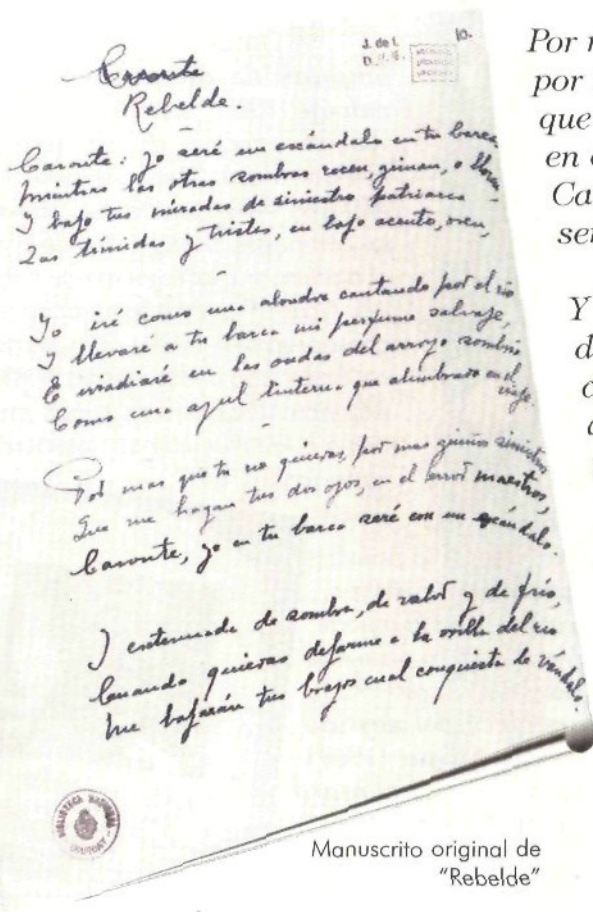 J. de I. 10.
D.
Caronte
Rebelde.
Caronte: yo seré un escándalo en tu barca
Mientras las otras sombras recen, giman, o lloren
Y bajo tus miradas de siniestro patriarca
Las tímidas y tristes, en bajo acento, oren,
Yo iré como una alondra cantando por el río
Y llevaré a tu barca mi perfume salvaje,
E irradiaré en las ondas del arroyo sombrío
Como una azul linterna que alumbrara en el
viaje.
Por mas que tu no quieras, por mas guiños siniestros
Que me hagan tus dos ojos, en el maestros,
Caronte, yo en tu barca seré un escándalo.
Y extenuada de sombra, de valor y de frío,
Cuando quieras dejarme a la orilla del río
Me bajarán tus brazos cual conquista de vándalo.
BIBLIOTECA NACIONAL
URUGUAY
Manuscrito original de
"Rebelde"
Por
por
que
en
Ca
ser
Y
d